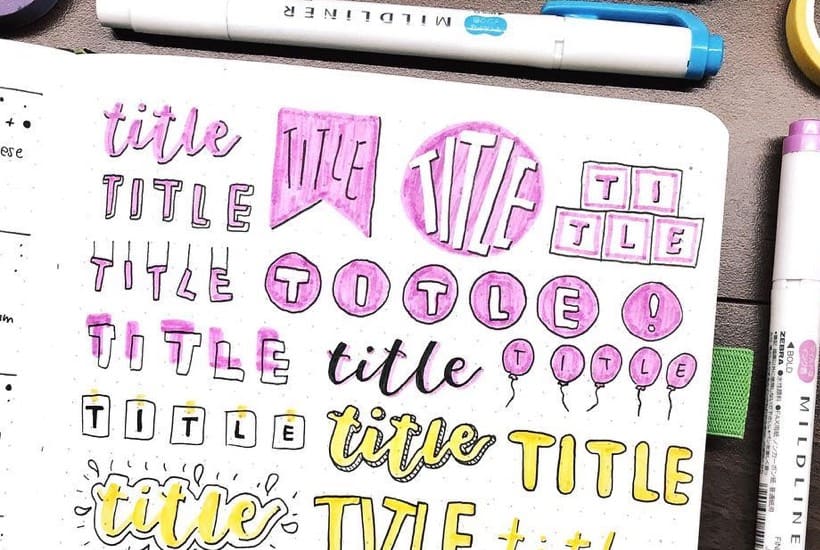 MILDLINER
title
TITLE
TITLE
TI
TLE
TITLE
TITLE
TITLE!
TITLE
title
TITLE
TITLE
title
TITLE
title
TITLE
ZEBRA
BOLD
MILDLINE